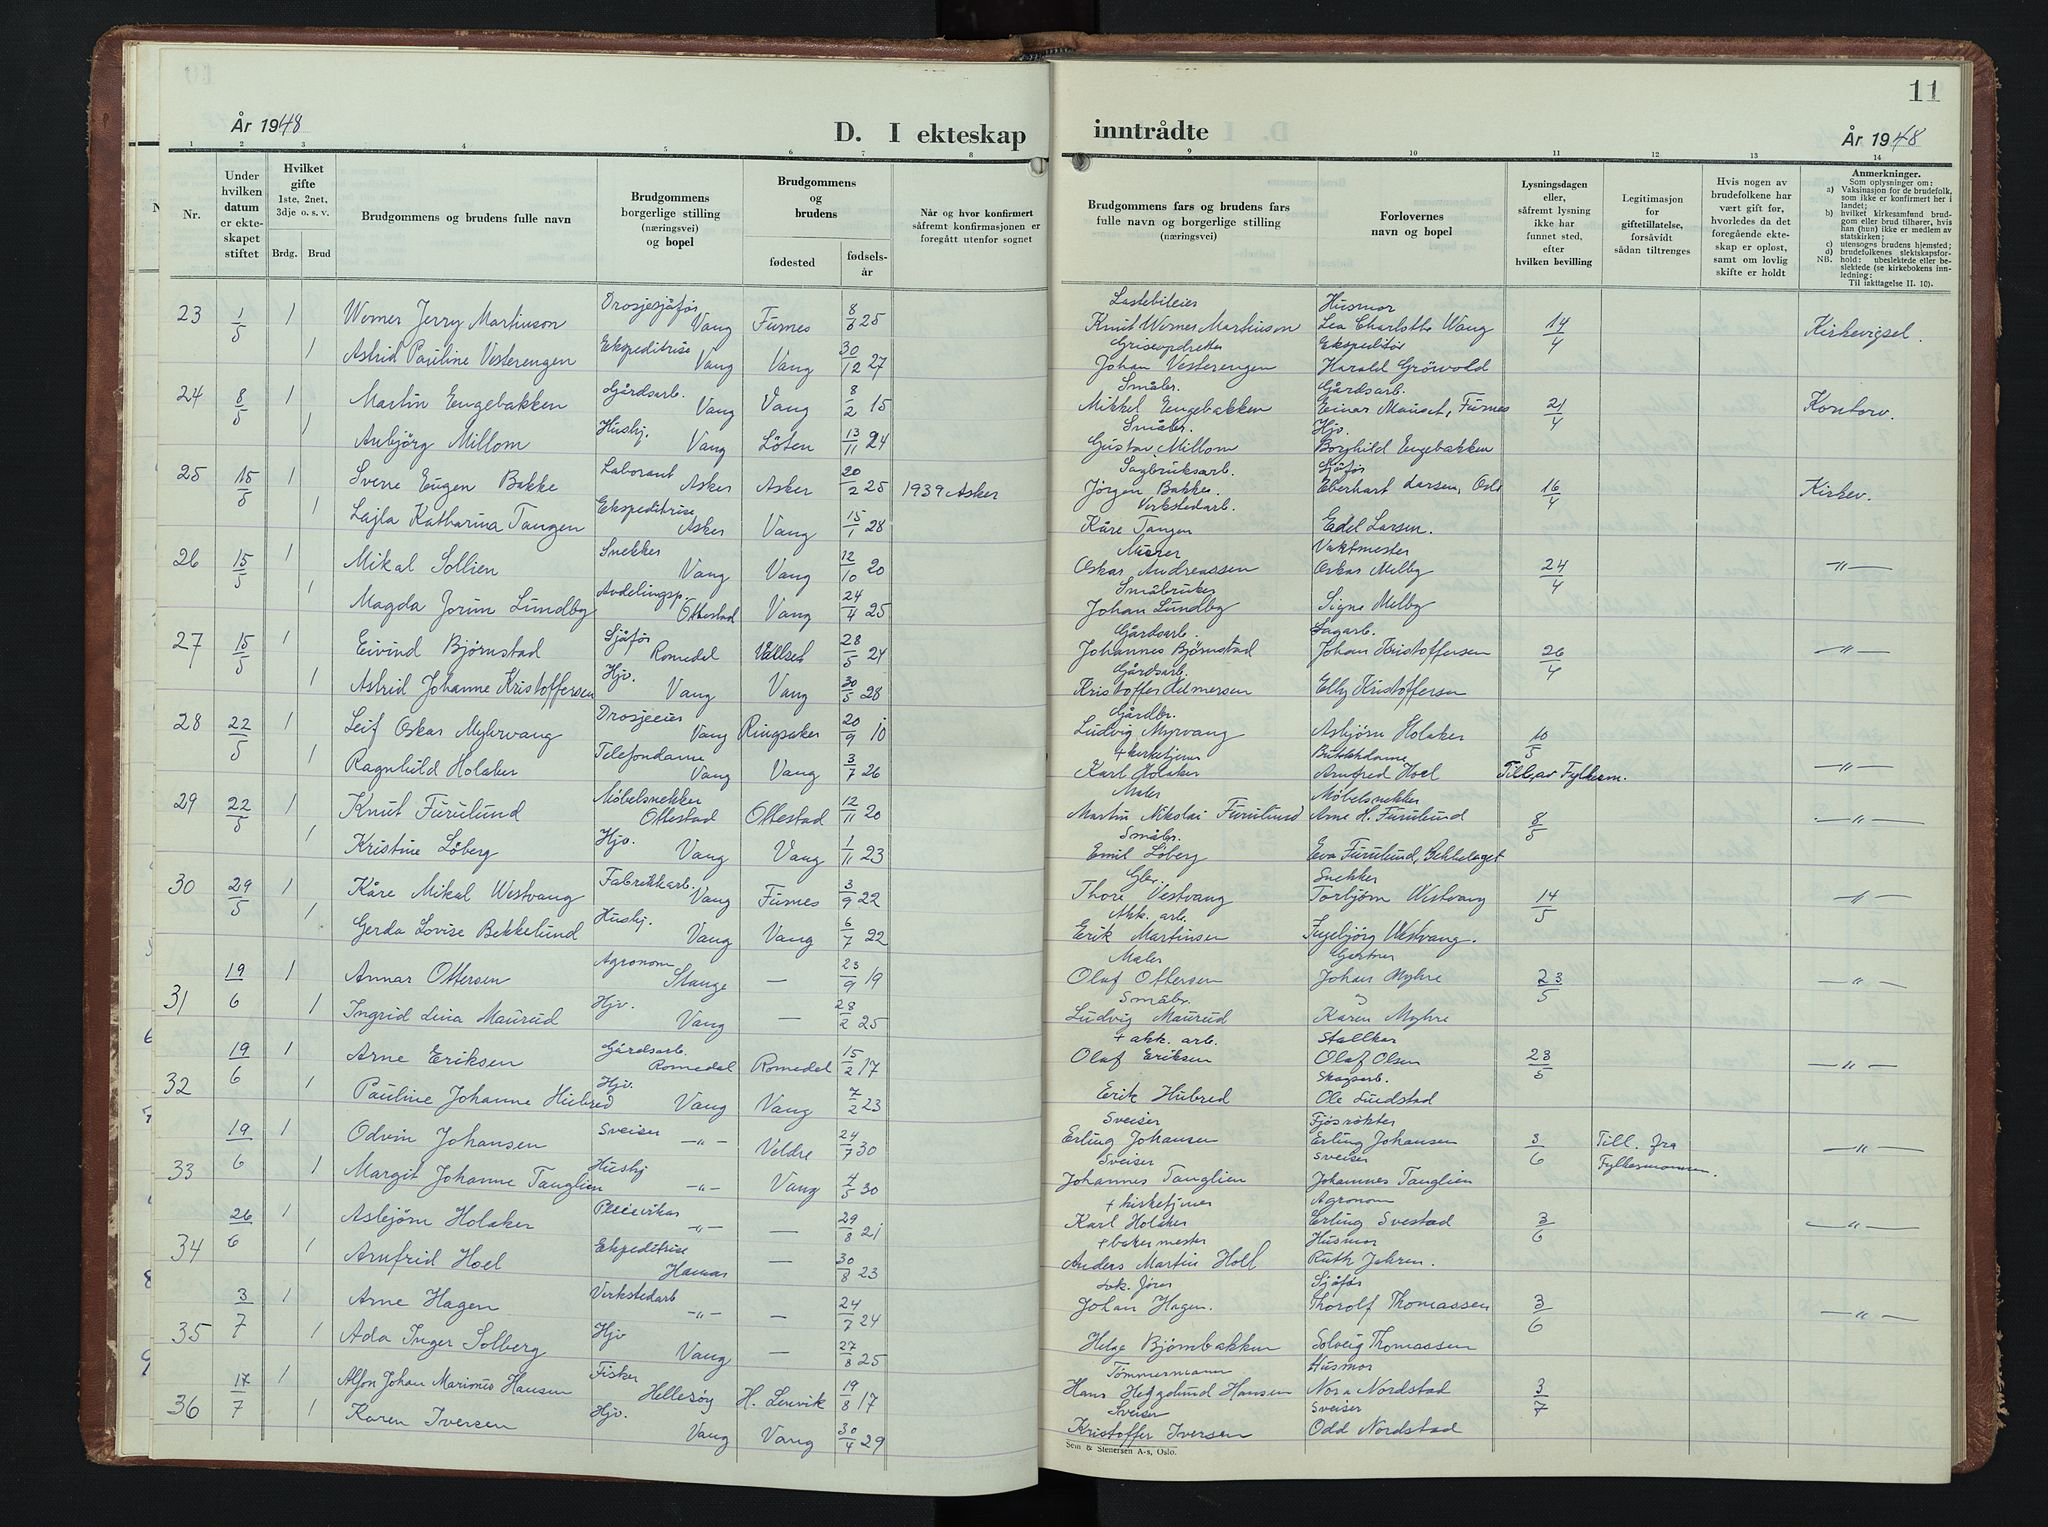 11
År 1948
D. I ekteskap
inntrådte
År 1948
1 2 3 4 5 6 7 8 9 10 11 12 13 14
Nr.
Under hvilken datum er ekteskapet stiftet
Hvilket gifte 1ste, 2net, 3dje o. s. v.
Brdg. Brud
Brudgommens og brudens fulle navn
Brudgommens borgerlige stilling (næringsvei) og bopel
Brudgommens og brudens
fødested
fødselsår
Når og hvor konfirmert såfremt konfirmasjonen er foregått utenfor sognet
Brudgommens fars og brudens fars fulle navn og borgerlige stilling (næringsvei)
Forlovernes navn og bopel
Lysningsdagen eller, såfremt lysning ikke har funnet sted, efter hvilken bevilling
Legitimasjon for giftetillatelse, forsåvidt sådan tiltrenges
Hvis nogen av brudefolkene har vært gift før, hvorledes da det foregående ekteskap er opløst, samt om lovlig skifte er holdt
Anmerkninger.
Som oplysninger om:
a) Vaksinasjon for de brudefolk, som ikke er konfirmert her i landet;
b) hvilket kirkesamfund brudgom eller brud tilhører, hvis han (hun) ikke er medlem av statskirken;
c) utensogns brudens hjemsted;
d) brudefolkenes slektskapsforhold: ubeslektede eller beslektede (se kirkebokens innledning;
NB.
Til iakttagelse II. 10).
Drosjesjåfør Lastebileier Husmor
23 1/5 1 Werner Jerry Martinson Vang Furnes 8/6 25 Knut Werner Martinson Lea Charlotte Wang 14/4 Kirkevigsel.
Ekspeditrise Griseopdretter Ekspeditør
1 Astrid Pauline Vesterengen Vang Vang 30/12 27 Johan Vesterengen Harald Grönvold
Gårdsarb. Småbr. Gårdsarb.
24 8/5 1 Martin Engebakken Vang Vang 8/2 15 Mikkel Engebakken Einar Mauset, Furnes 21/4 Kontorv.
Hushj. Småbr. Hjv.
1 Anbjörg Millom Vang Löten 13/11 24 Gustav Millom Borghild Engebakken
Laborant Sagbruksarb. Sjåfør
25 15/5 1 Sverre Eugen Bakke Asker Asker 20/2 25 1939 Asker Jörgen Bakke. Eberhart Larsen, Oslo 16/4 Kirkev.
Ekspeditrise Verkstedarb.
1 Lajla Katharina Tangen Asker Vang 15/1 28 Kåre Tangen Edel Larsen.
Snekker Murer Vaktmester
26 15/5 1 Mikal Sollien Vang Vang 12/10 20 Oskar Andreassen Oskar Melby 24/4 —"—
Avdelingsp. Småbruker
1 Magda Jorun Lundby Ottestad Vang 24/4 25 Johan Lundby Signe Melby
Sjåfør Gårdsarb. Sagarb.
27 15/5 1 Eivind Bjørnstad Romedal Vallset 28/5 24 Johannes Bjørnstad Johan Kristoffersen 26/4 —"—
Hjv. Gårdsarb.
1 Astrid Johanne Kristoffersen Vang Vang 30/5 28 Kristoffer Helmersen Elly Kristoffersen
Drosjeeier Gårdbr.
28 22/5 1 Leif Oskar Myhrvang Vang Ringsaker 20/9 10 Ludvig Myrvang Asbjørn Holaker 10/5
Telefondame + kirketjener Butikkdame
1 Ragnhild Holaker Vang Vang 3/7 26 Karl Holaker Arnfred Hoel Till. av Fylkesm. —"—
Møbelsnekker Maler Møbelsnekker
29 22/5 1 Knut Furulund Ottestad Ottestad 12/11 20 Martin Nikolai Furulund Arne H. Furulund 8/5 —"—
Hjv. Småbr.
1 Kristine Löberg Vang Vang 1/11 23 Emil Löberg Eva Furulund, Bekkelaget
Fabrikkarb. Gbr. Snekker
30 29/5 1 Kåre Mikal Westvang Vang Furnes 3/9 22 Thore Vestvang Torbjørn Westvang 14/5 —"—
Hushj. Akk. arb.
1 Gerda Lovise Bekkelund Vang Vang 6/7 22 Erik Martinsen Ingebjörg Westvang.
Agronom Maler Gartner
31 19/6 1 Annar Ottersen Stange — 23/9 19 Olaf Ottersen Johan Myhre 23/5 —"—
Hjv. Småbr. "
1 Ingrid Lina Maurud Vang — 28/2 25 Ludvig Maurud Karen Myhre
Gårdsarb. + akk. arb. Stallkar
32 19/6 1 Arne Eriksen Romedal Romedal 15/2 17 Olaf Eriksen Olaf Olsen 28/5 —"—
Hjv. Skogsarb.
1 Pauline Johanne Hubred Vang Vang 7/2 23 Erik Hubred Ole Lundstad
Sveiser Sveiser Fjøsrøkter
33 19/6 1 Odvin Johansen —"— Veldre 24/7 30 Erling Johansen Erling Johansen 3/6 Till. fra Fylkesmannen. —"—
Hushj Sveiser Sveiser
1 Margit Johanne Tanglien —"— Vang 4/5 30 Johannes Tanglien Johannes Tanglien
+ kirketjener Agronom
34 26/6 1 Asbjørn Holaker —"— — 29/8 21 Karl Holaker Erling Svestad 3/6 —"—
Ekspeditrise + bakermester Husmor
1 Arnfrid Hoel Hamar — 30/8 23 Anders Martin Hoel Ruth Jahren.
Verkstedarb Sjåfør
35 3/7 1 Arne Hagen —"— — 24/7 24 Johan Hagen. Thorolf Thomassen 3/6 —"—
Hjv
1 Ada Inger Solberg Vang — 27/8 25 Helge Bjørnbakken Solveig Thomassen
Fisker Tömmermann Husmor
36 17/7 1 Alfon Johan Marionus Hansen Hellesöy H. Lenvik 19/8 17 Hans Heggelund Hansen Nora Nordstad 3/7
Hjv. Sveiser Sveiser
1 Karen Iversen Vang Vang 30/4 29 Kristoffer Iversen Odd Nordstad
Sem & Stenersen A-s, Oslo.